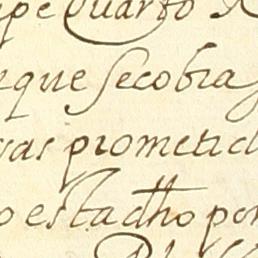 pe Quarto
que se cobra
vas prometid
o estadho por